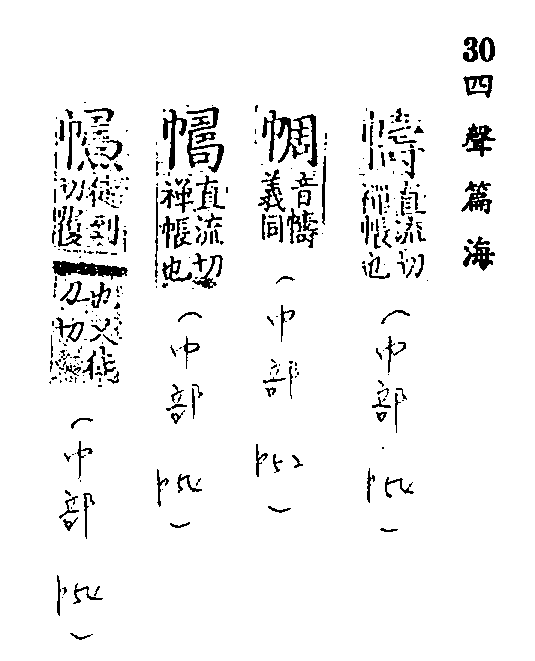 30 四聲篇海
幬 直流切
禪帳也
(巾部 P54)
音幬
義同
(巾部 P52)
直流切
禪帳也
(巾部 P54)
徒到
切覆
也又徒
刀切
(巾部 P54)